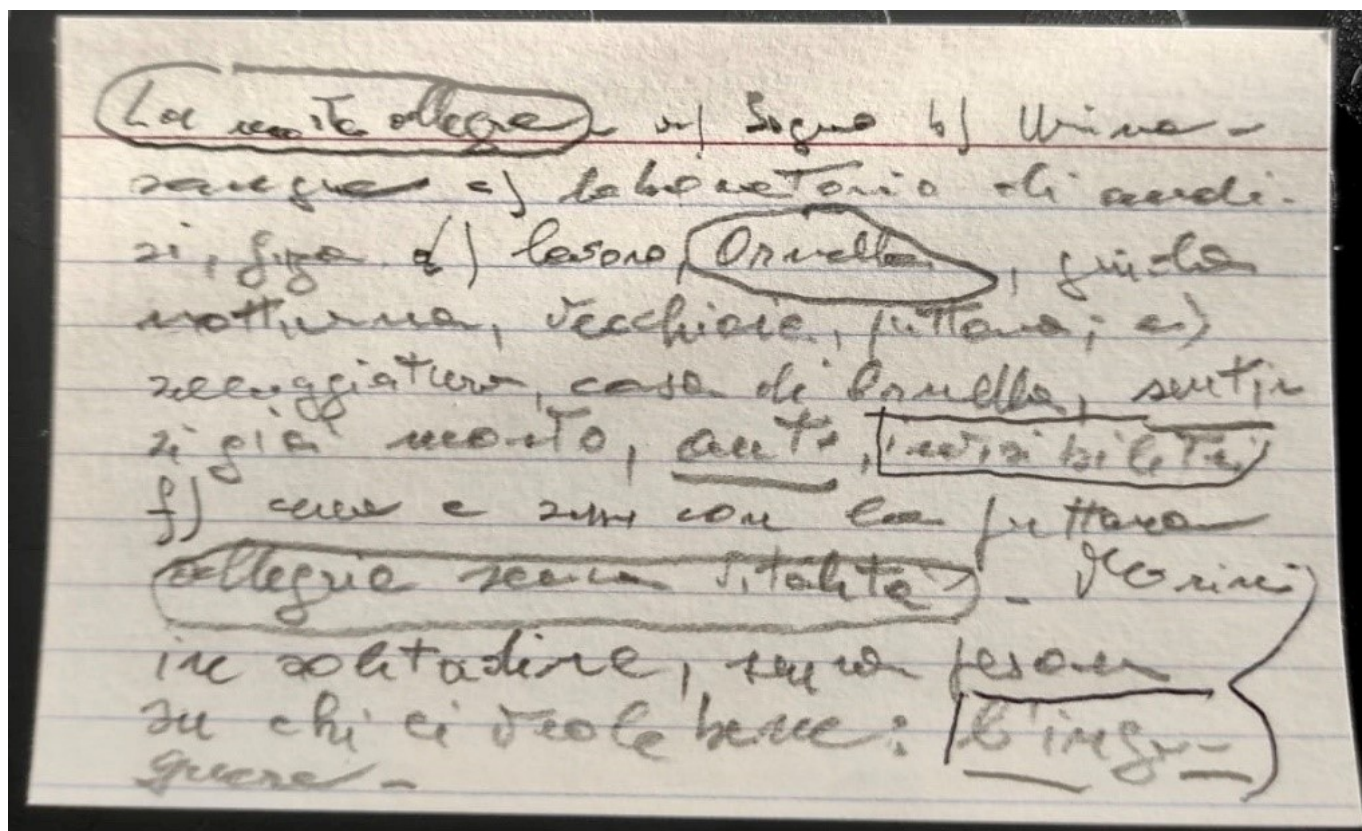 La morte allegra - a) Sogno b) Urina -
sangue c) laboratorio di anali-
si, fuga d) lavoro, Ornella, guida
notturna, vecchiaia, puttana; e)
villeggiatura, casa di Ornella, sentir
si già morto, auto, invisibilità
f) cena e con la puttana
allegria senza vitalità - Morire
in solitudine, senza pesare
su chi ci vuole bene: